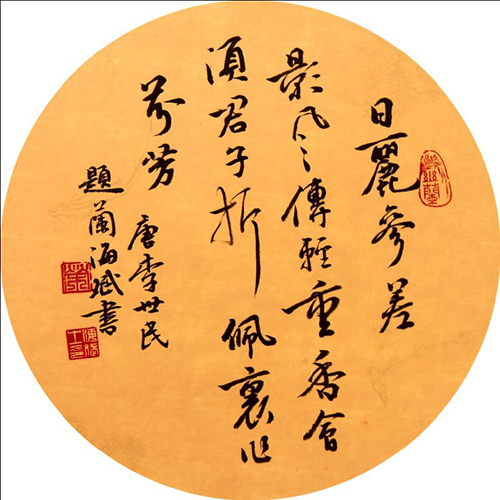 日麗參差
影風傳輕重香會
須君子折佩裏作
芬芳
唐李世民
題蘭海斌書